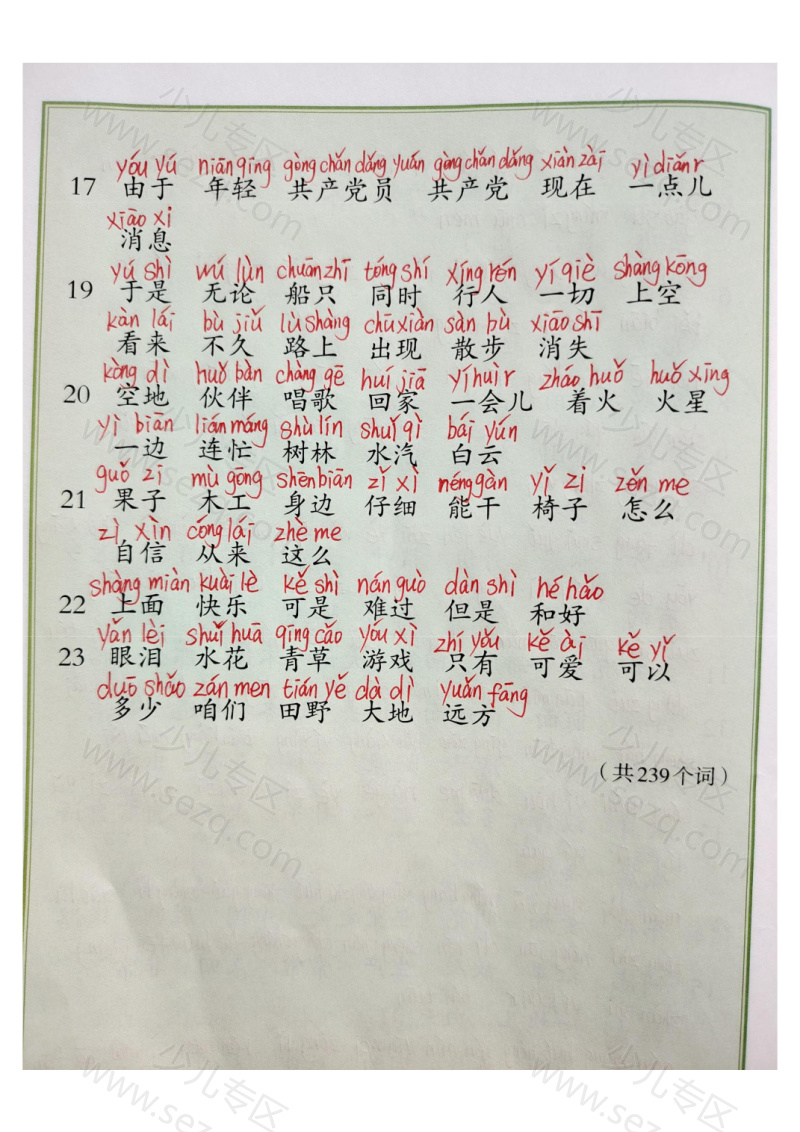 yóu yú niān qīng gòng chǎn dǎng yuán gòng chǎn dǎng xiàn zài yì diǎnr
17 由于 年轻 共产党员 共产党 现在 一点儿
xiāo xi
消息
yú shì wú lùn chuān zhī tóng shí xíng rén yí qiè shàng kōng
19 于是 无论 船只 同时 行人 一切 上空
kàn lái bù jiǔ lù shàng chū xiàn sàn bù xiāo shī
看来 不久 路上 出现 散步 消失
kòng dì huǒ bàn chàng gē huí jiā yí huìr zháo huǒ huǒ xīng
20 空地 伙伴 唱歌 回家 一会儿 着火 火星
yì biān lián máng shù lín shuǐ qì bái yún
一边 连忙 树林 水汽 白云
guǒ zi mù gōng shēn biān zǐ xì néng gàn yǐ zi zěn me
21 果子 木工 身边 仔细 能干 椅子 怎么
zì xìn cóng lái zhè me
自信 从来 这么
shàng miàn kuài lè kě shì nán guò dàn shì hé hǎo
22 上面 快乐 可是 难过 但是 和好
yǎn lèi shuǐ huā qīng cǎo yóu xì zhí yǒu kě ài kě yǐ
23 眼泪 水花 青草 游戏 只有 可爱 可以
duō shǎo zán men tián yě dà dì yuǎn fāng
多少 咱们 田野 大地 远方
（共239个词）
少儿专区
www.sezq.com